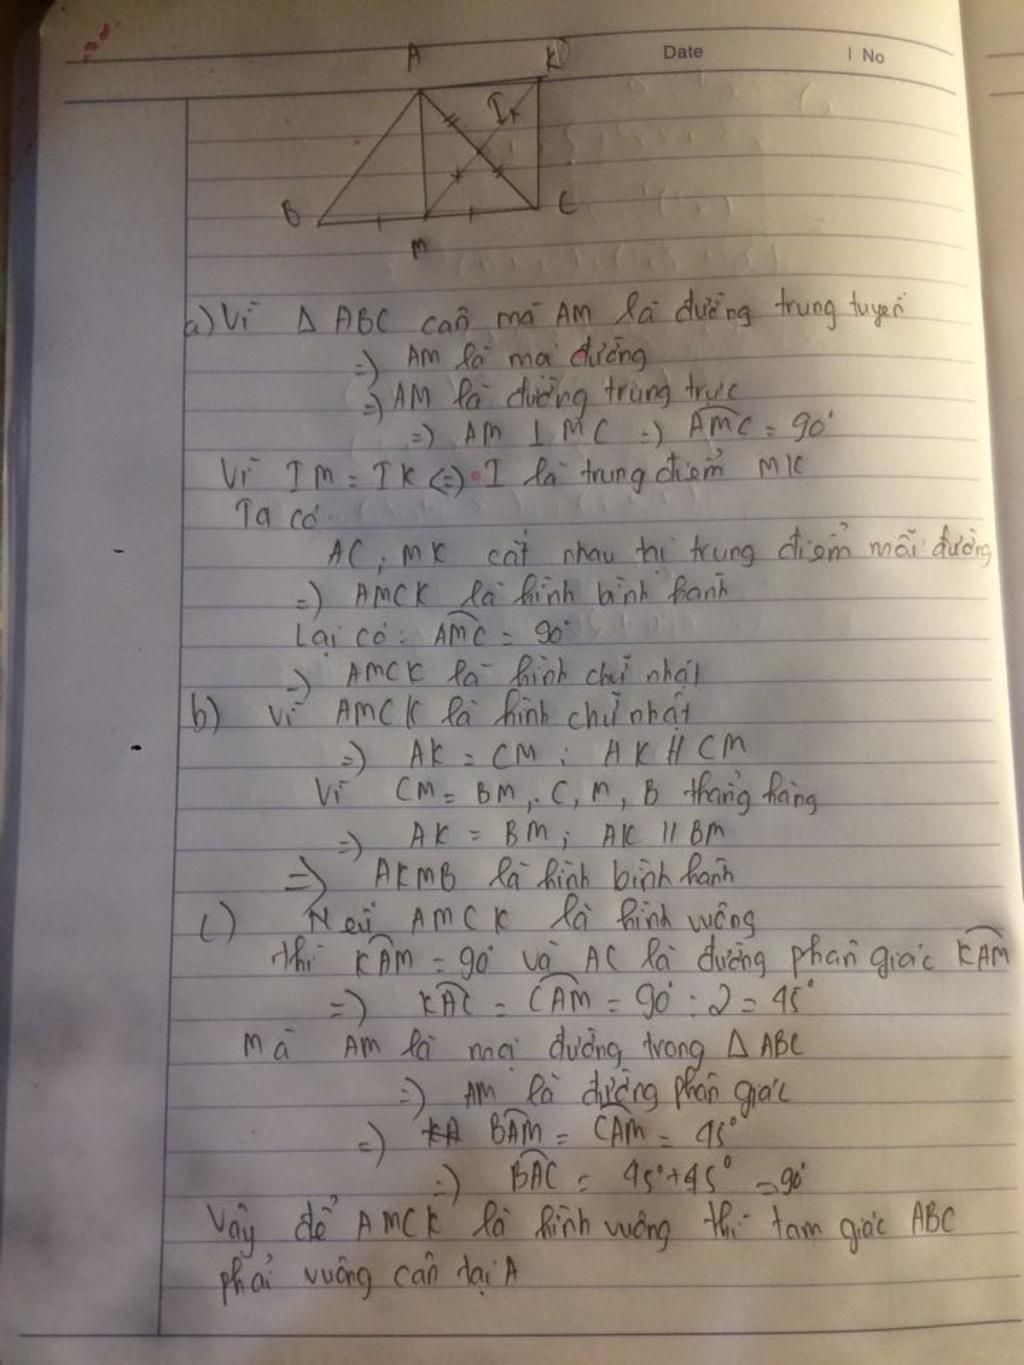 Date
No
A
K
I
B
M
C
a) Vì Δ ABC cân mà AM là đường trung tuyến
=) AM là mọi đường
=) AM là đường trung trực
=) AM ⊥ MC =) AMC = 90°
Vì IM = IK <=> I là trung điểm MK
Ta có
AC, MK cắt nhau tại trung điểm mỗi đường
=) AMCK là hình bình hành
Lại có: AMC = 90°
=) AMCK là hình chữ nhật
b) Vì AMCK là hình chữ nhật
=) AK = CM ; AK // CM
Vì CM = BM, C, M, B thẳng hàng
=) AK = BM; AK // BM
=) AKMB là hình bình hành
c) Nếu AMCK là hình vuông
thì KAM = 90° và AC là đường phân giác KAM
=) KAC = CAM = 90° : 2 = 45°
Mà AM là mọi đường trong Δ ABC
=) AM là đường phân giác
=) BAM = CAM = 45°
=) BAC = 45° + 45° = 90°
Vậy để AMCK là hình vuông thì tam giác ABC
phải vuông cân tại A